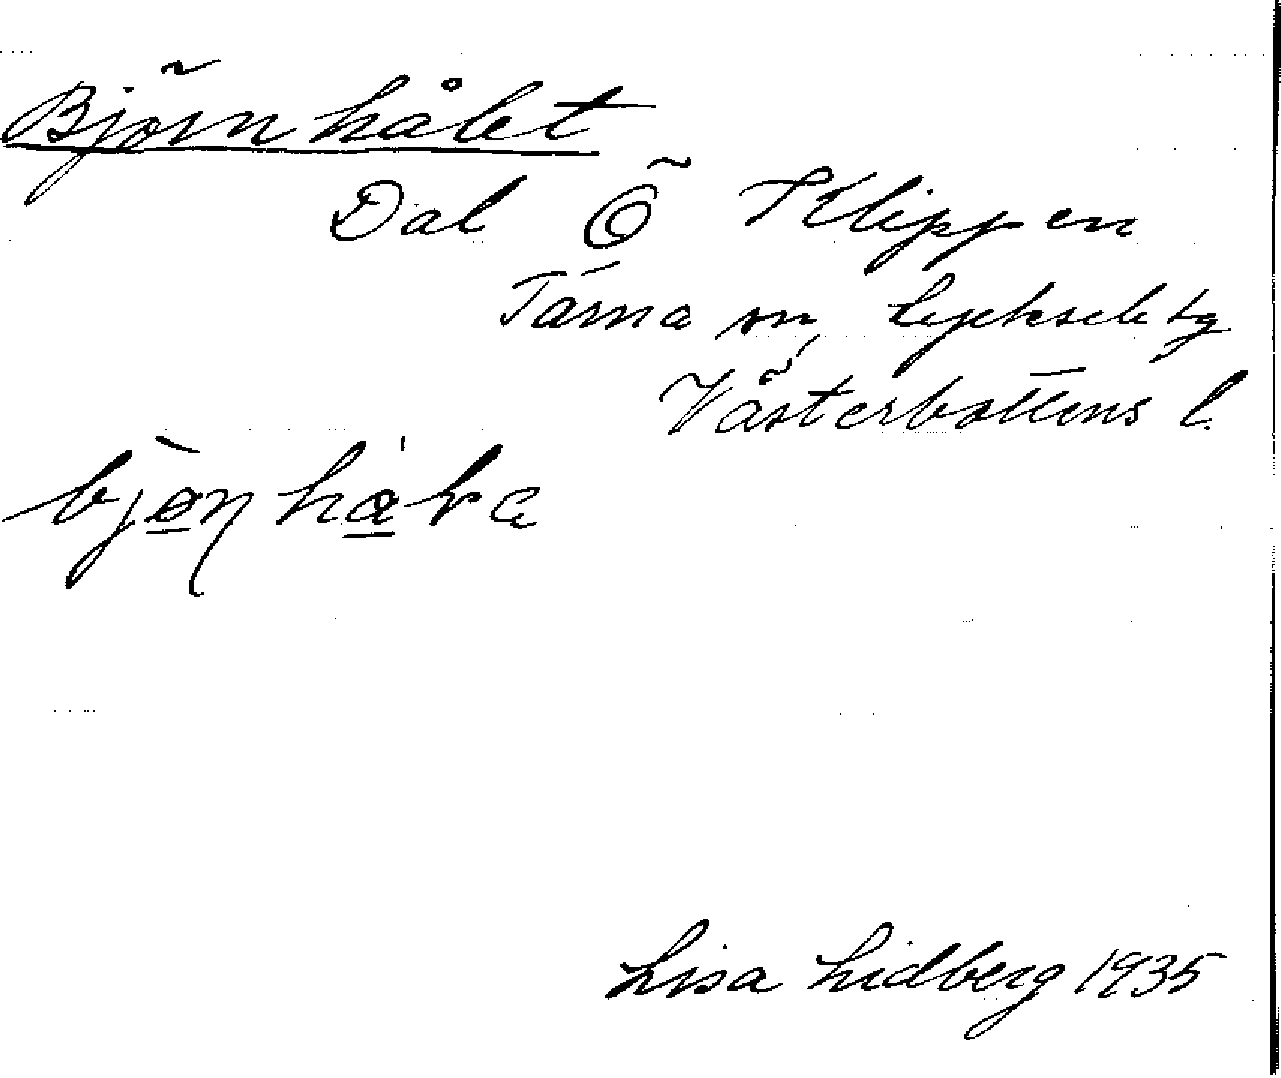 Björnhålet
Dal Ö Klippen
Tärna sn, Lycksele tg
Västerbottens l.
Lisa Lidberg 1935